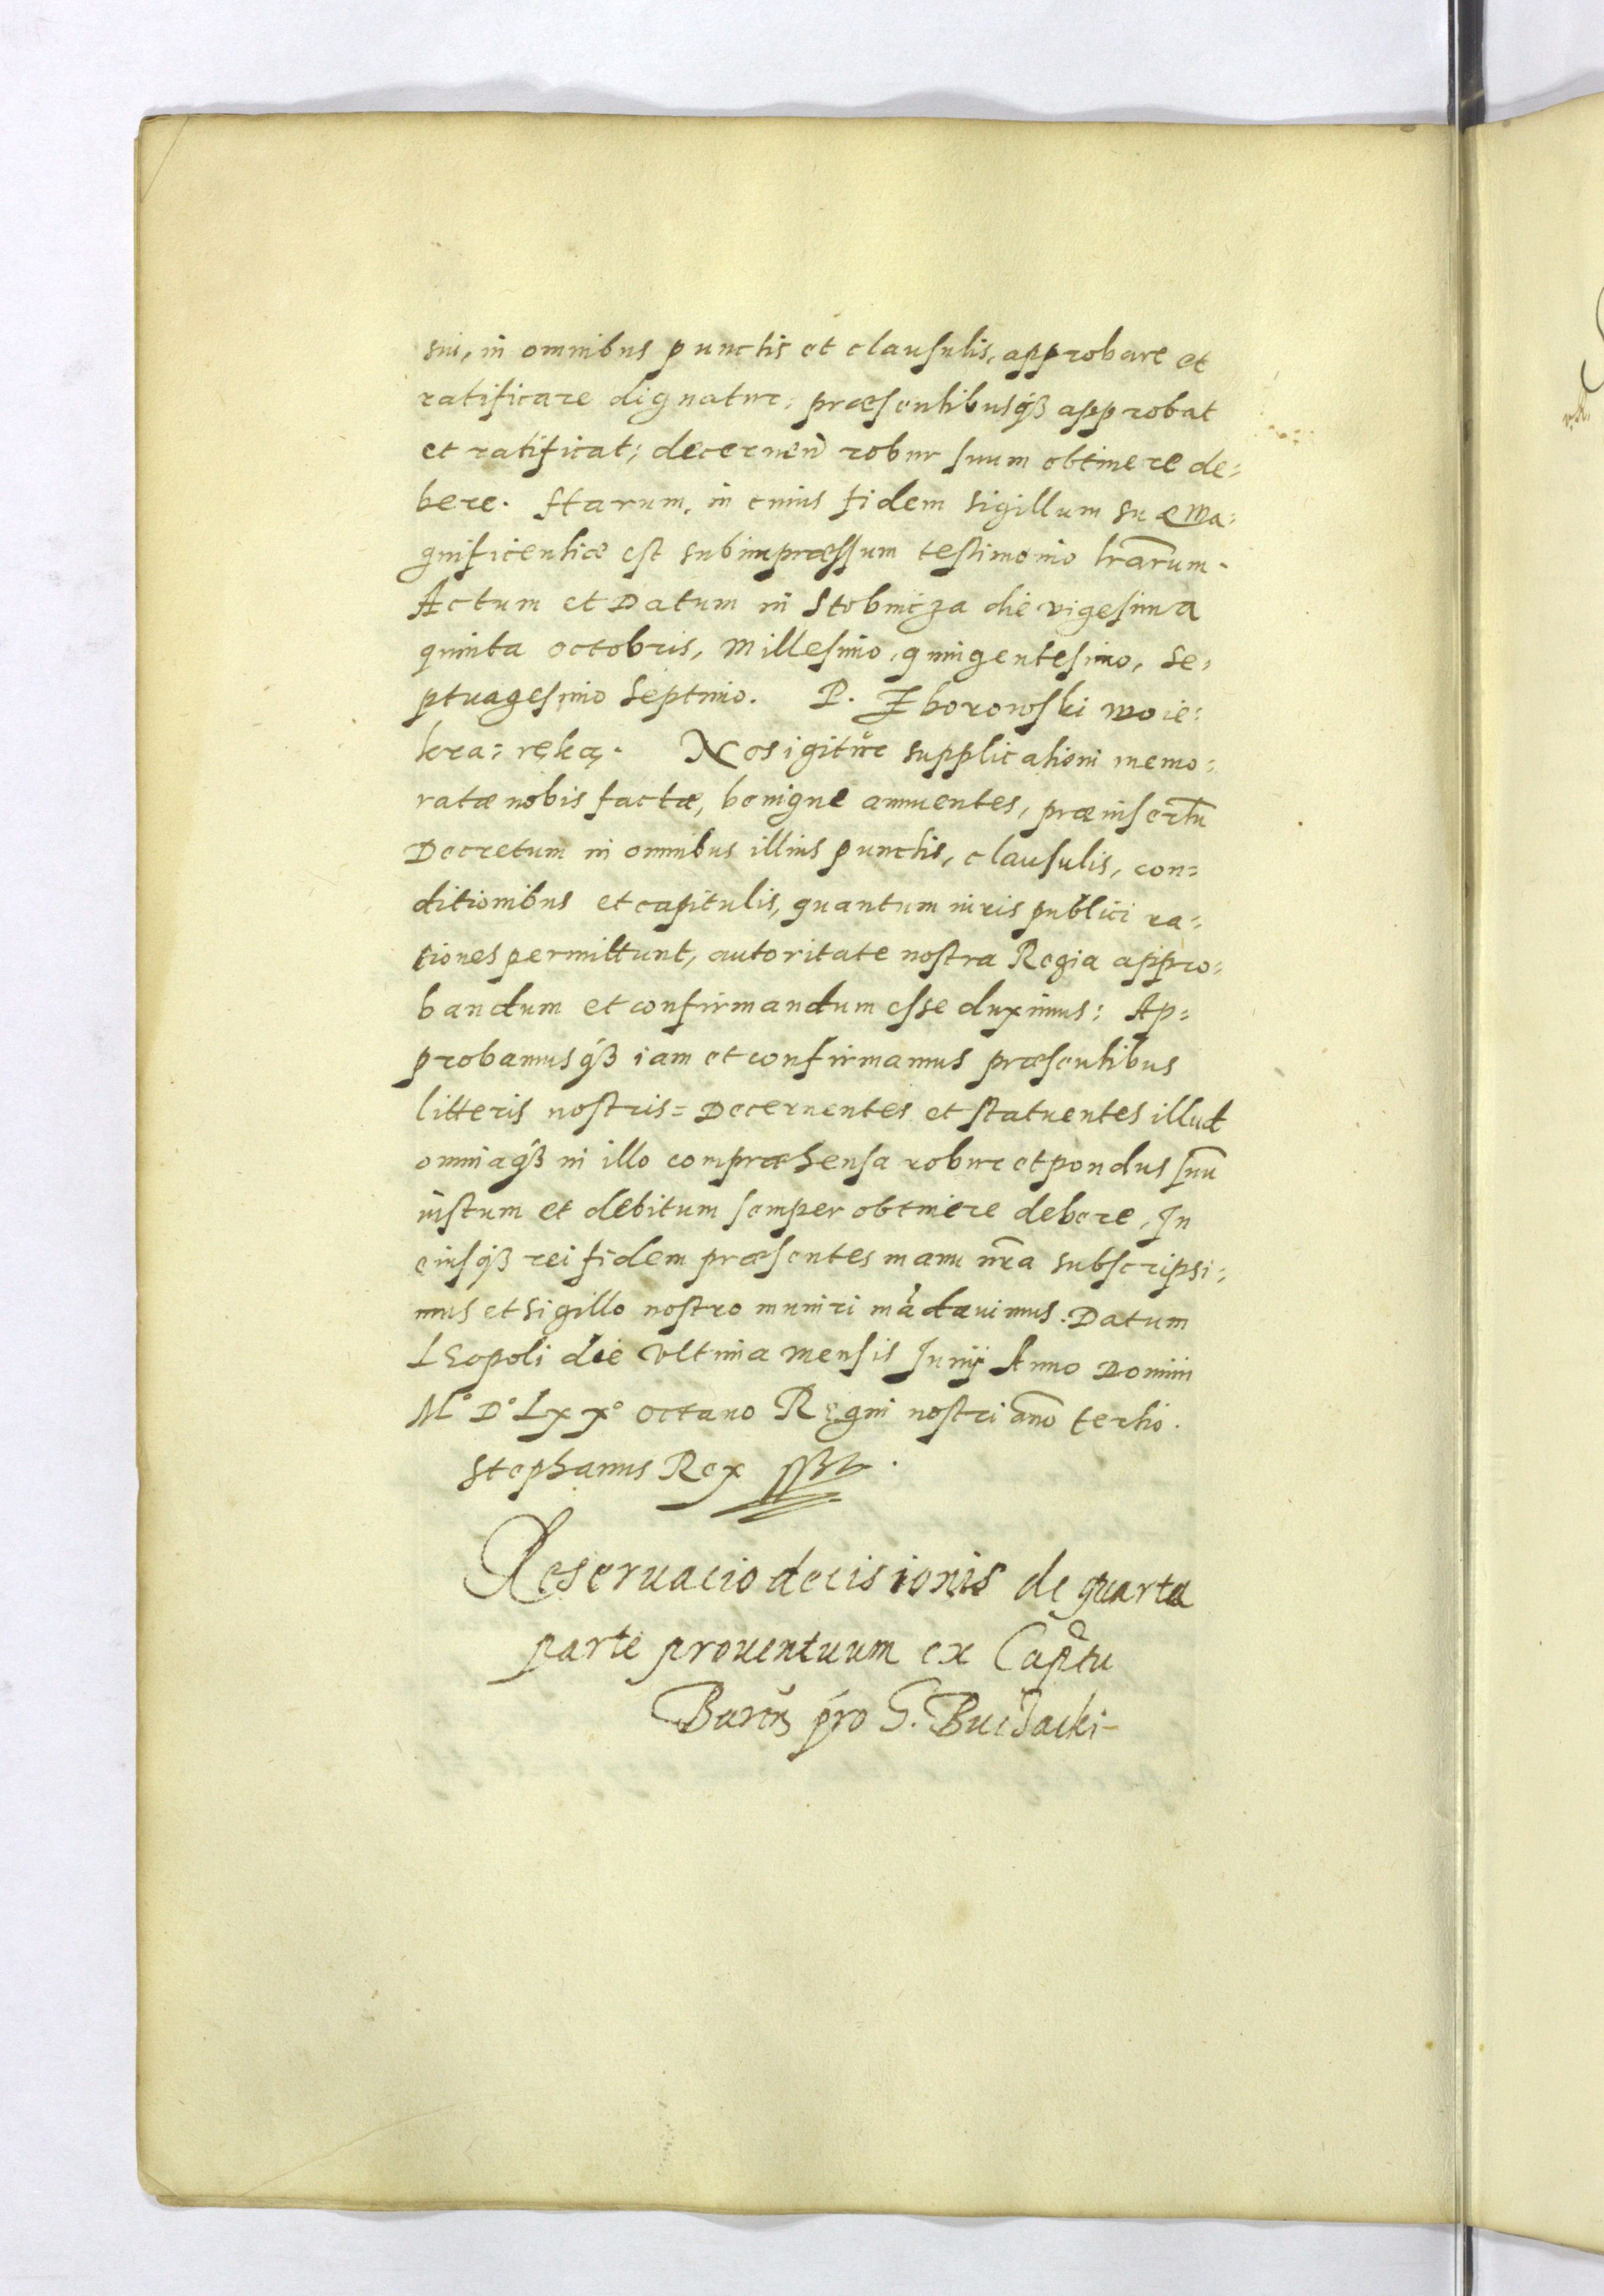 sui, in omnibus punctis et clausulis, approbare et
ratificare dignatur, præsentibusqȝ approbat
et ratificat; decernen̄ robur suum obtinere de=
bere. Harum, in cuius fidem sigillum suæ Ma=
gnificentiæ est subimpræssum testimonio lr̄arum.
Actum et Datum in Stobnicza die vigesima
quinta octobris, Millesimo, quingentesimo, se=
ptuagesimo septimo. P. Zborowski woie:
kra: ręką. Nos igitur supplicationi memo=
ratæ nobis factæ, benigne annuentes, præinsertū
Decretum in omnibus illius punctis, clausulis, con=
ditionibus et capitulis, quantum iuris publici ra=
tiones permittunt, autoritate nostra Regia appro=
bandum et confirmandum esse duximus: Ap=
probamusqȝ iam et confirmamus præsentibus
litteris nostris= Decernentes et statuentes illud
omniaqȝ in illo compræhensa robur et pondus suū
iustum et debitum semper obtinere debere, In
eiusqȝ rei fidem præsentes manu nr̄a subscripsi=
mus et sigillo nostro muniri mādavimus. Datum
LEopoli die Vltima mensis Junij Anno Domini
M° D° Lxx° octauo Regni nostri anō tertio.
Stephanus Rex
Reseruacio decisionis de quarta
parte prouentuum ex Captu
pro G. Bucżacki